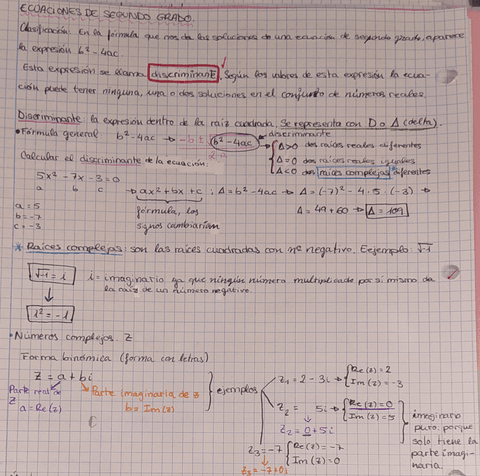 ECUACIONES DE SEGUNDO GRADO.
Clasificación: En la fórmula que nos da las soluciones de una ecuación de segundo grado, aparece
la expresión b²-4ac.
Esta expresión se llama discriminante. Según los valores de esta expresión la ecua-
ción puede tener ninguna, una o dos soluciones en el conjunto de números reales.
Discriminante: la expresión dentro de la raíz cuadrada. Se representa con D o Δ (delta).
• Fórmula general b²-4ac → -b ± b²-4ac → discriminante
Δ>0 dos raíces reales diferentes
Δ=0 dos raíces reales iguales
Δ<0 dos raíces complejas diferentes
Calcular el discriminante de la ecuación:
5x² - 7x - 3 = 0
a b c
→ ax²+bx+c ; Δ=b²-4ac → Δ=(-7)²-4·5·(-3) →
fórmula, los
signos cambiarían
Δ=49+60 → Δ=109
a=5
b=-7
c=-3
* Raíces complejas: son las raíces cuadradas con nº negativo. Eejemplo: √-1
√-1 = i
i = imaginario ya que ningún número multiplicado por si mismo da
la raíz de un número negativo.
i² = -1
• Números complejos. Z
Forma binómica (forma con letras)
Z = a + bi
Parte real de
Z
a=Re(z)
Parte imaginaria de z
b = Im(z)
ejemplos
Z₁ = 2 - 3i → Re(z)=2
Im(z)=-3
Z₂ = 5i → Re(z)=0
Im(z)=5
Z₂ = 0+5i
imaginario
puro, porque
solo tiene la
parte imagi-
naria.
Z₃=-7 Re(z)=-7
Im(z)=0
Z₃=-7+0i